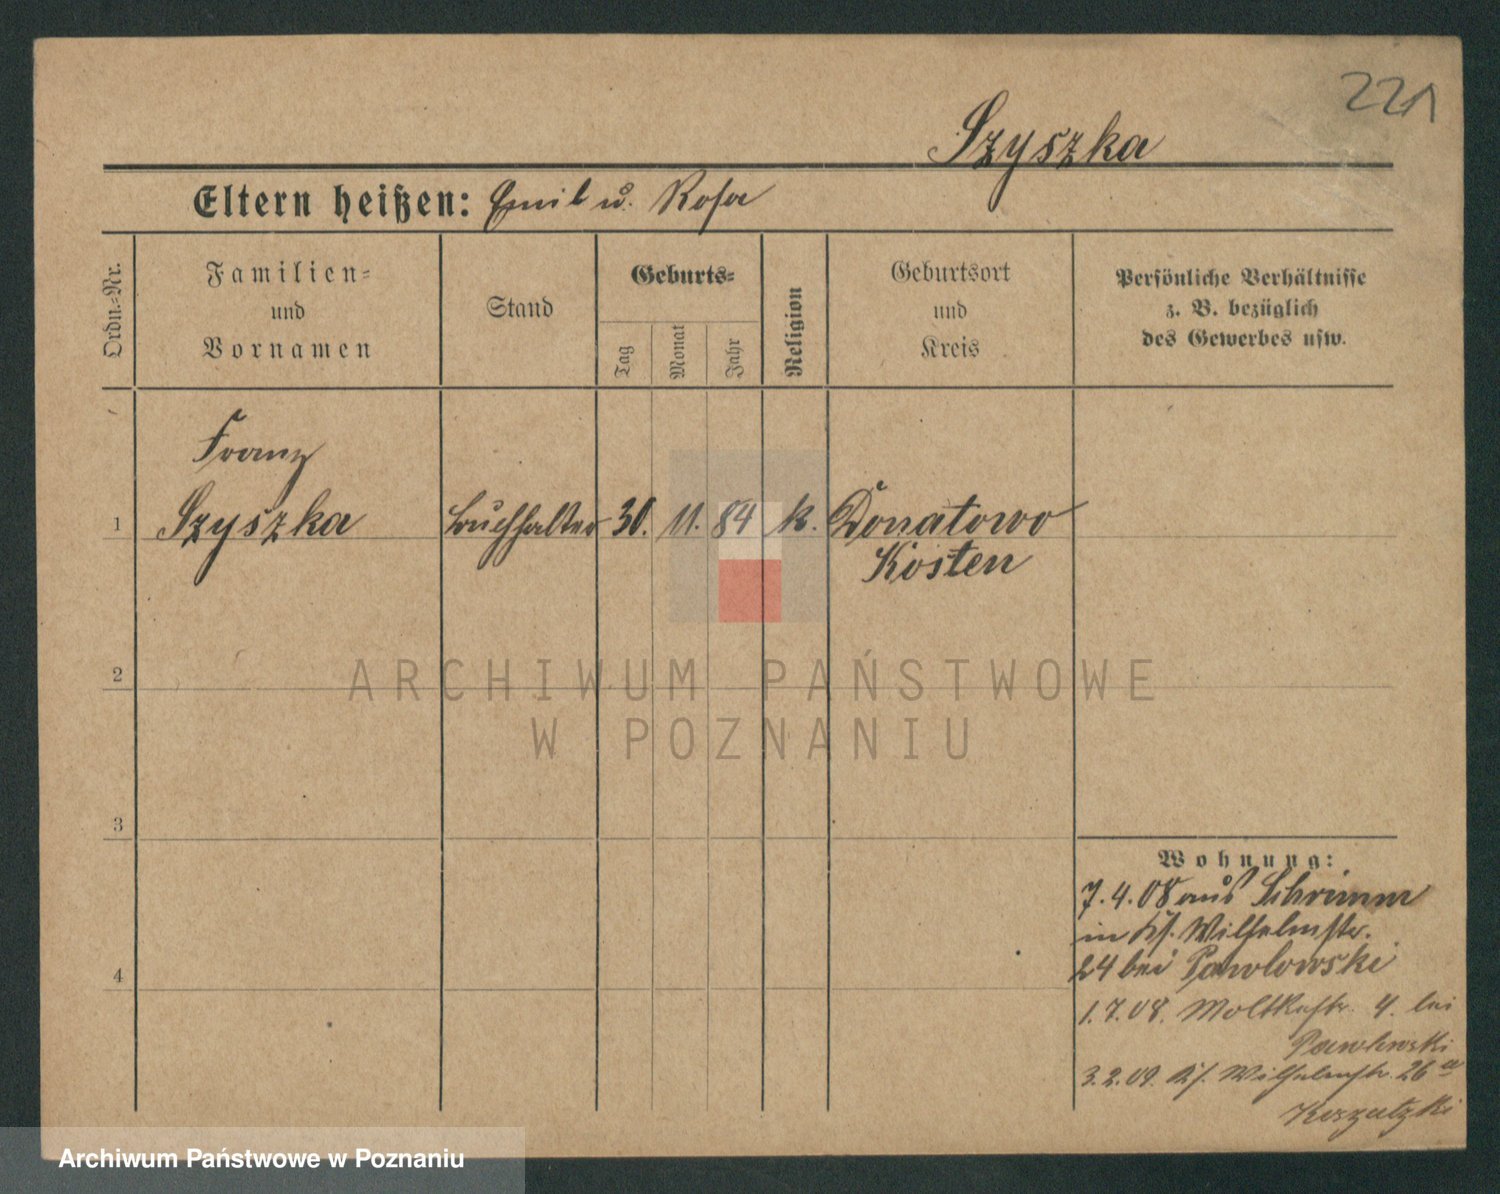 221
Szyszka
Eltern heißen: Emil u. Rosa
Ordn.=Nr.
Familien=
und
Vornamen
Stand
Geburts=
Tag
Monat
Jahr
Religion
Geburtsort
und
Kreis
Persönliche Verhältnisse
z. B. bezüglich
des Gewerbes usw.
Franz
1 Szyszka Buchhalter 30. 11. 84 k. Donatowo
Kosten
2
3
4
Wohnung:
7.4.08 aus Schrimm
in Ks. Wilhelmstr.
24 bei Pawlowski
1.7.08. Moltkestr. 4. bei
Pawlowski
3.2.09. Ks. Wilhelmstr. 26 a
ARCHIWUM PAŃSTWOWE
W POZNANIU
Archiwum Państwowe w Poznaniu